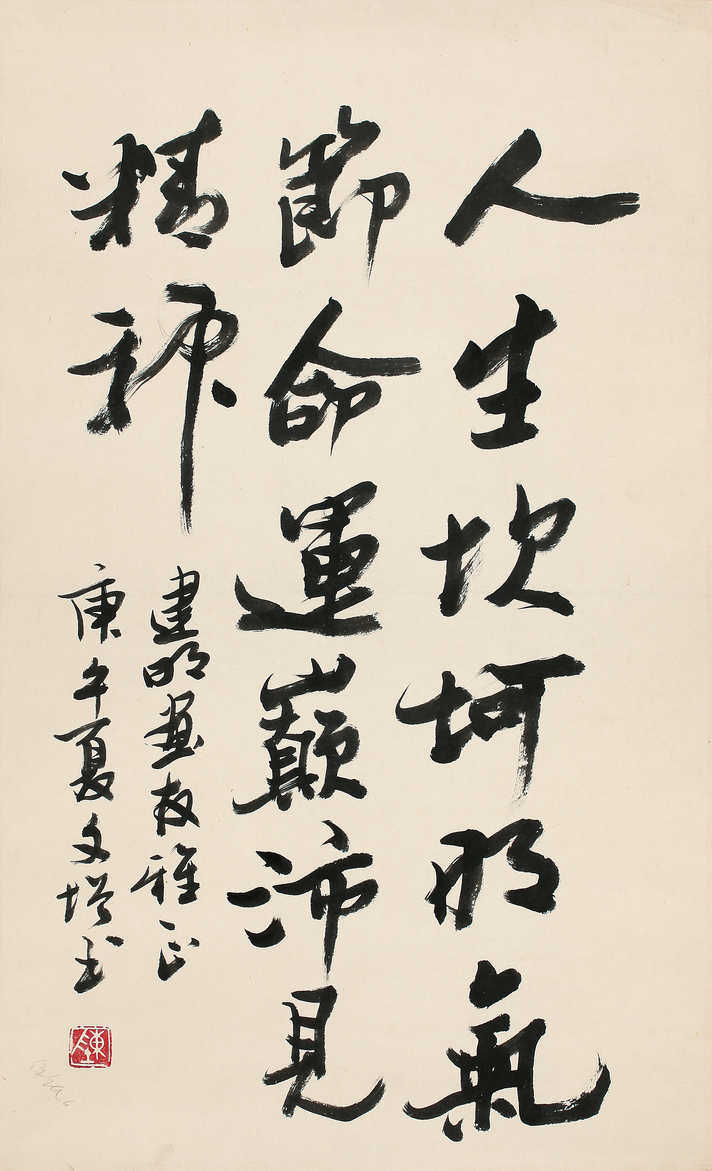 人生坎坷明氣
節命運巔沛見
精神
建明畫友雅正
庚午夏文塔書
陳